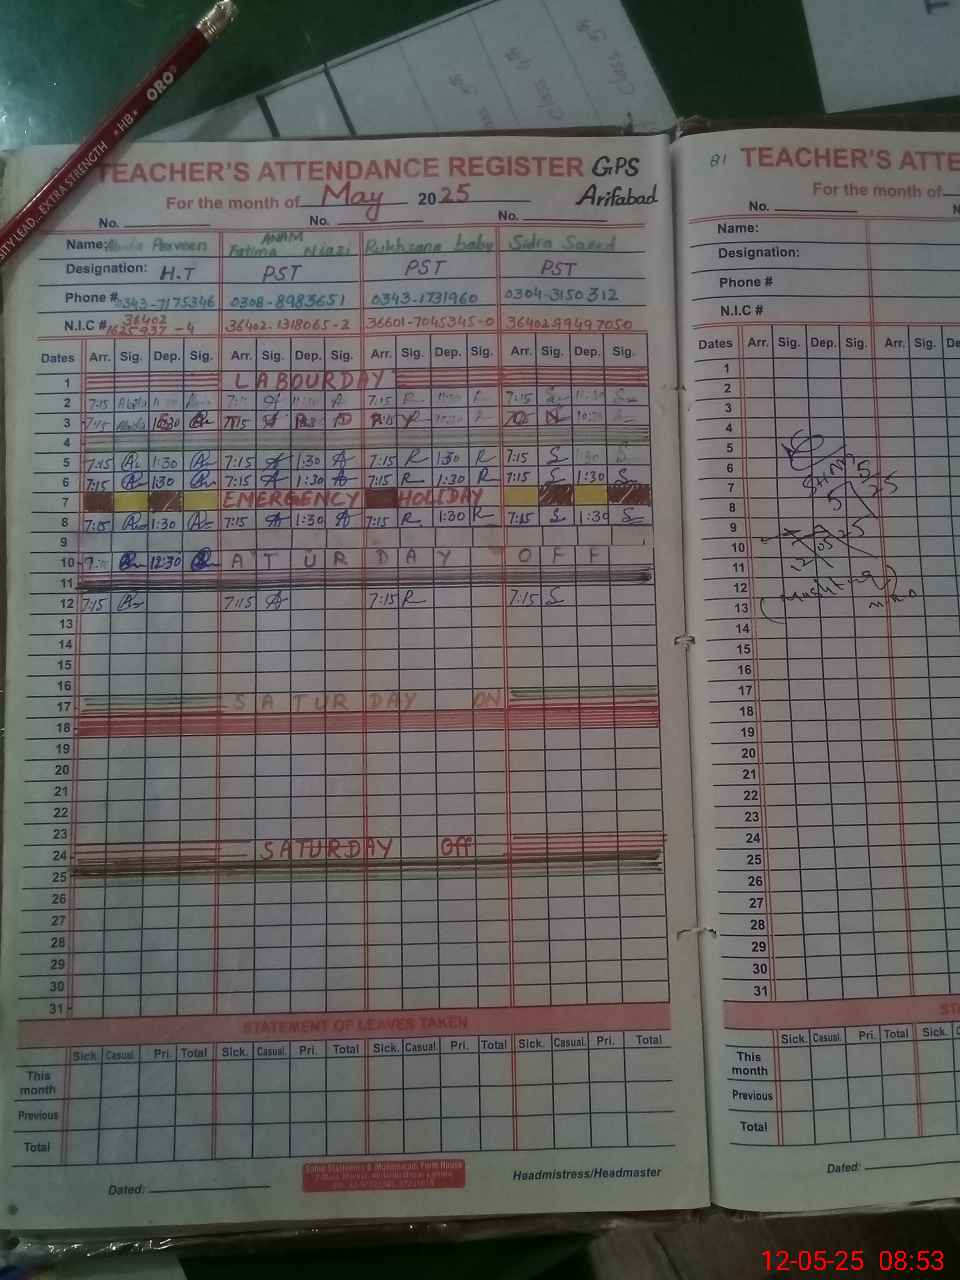 ORO
*HB*
SITY LEAD.. EXTRA STRENGTH
TEACHER'S ATTENDANCE REGISTER GPS
For the month of May 2025 Arifabad
No. No. No.
Name: Abida Parveen ANAM Fatima Niazi Rukhsana baby Sidra Saeed
Designation: H.T PST PST PST
Phone # 0343-7175346 0308-8983651 0343-1731960 0304-3150312
N.I.C # 36402 1625937-4 36402-1318065-2 36601-7045345-0 3640299497050
Dates Arr. Sig. Dep. Sig. Arr. Sig. Dep. Sig. Arr. Sig. Dep. Sig. Arr. Sig. Dep. Sig.
1 LABOURDAY
2 7:15 Abida 7:15 A A 7:15 R R 7:15 S S
3 7:15 Abida
4
5 7:15 1:30 7:15 A 1:30 A 7:15 R 1:30 R 7:15 S 1:30 S
6 7:15 1:30 7:15 A 1:30 A 7:15 R 1:30 R 7:15 S 1:30 S
7 EMERGENCY HOLIDAY
8 7:15 1:30 7:15 A 1:30 A 7:15 R 1:30 R 7:15 S 1:30 S
9
10 12:30 A T U R D A Y O F F
11
12 7:15 7:15 A 7:15 R 7:15 S
13
14
15
16
17 SATURDAY ON
18
19
20
21
22
23
24 SATURDAY Off
25
26
27
28
29
30
31
STATEMENT OF LEAVES TAKEN
Sick. Casual. Pri. Total Sick. Casual. Pri. Total Sick. Casual. Pri. Total Sick. Casual. Pri. Total
This month
Previous
Total
Dated:
Headmistress/Headmaster
81 TEACHER'S ATTE
For the month of
No.
Name:
Designation:
Phone #
N.I.C #
Dates Arr. Sig. Dep. Sig. Arr. Sig. De
1
2
3
4
5
6
7
8
9
10
11
12
13
14
15
16
17
18
19
20
21
22
23
24
25
26
27
28
29
30
31
ST
Sick. Casual. Pri. Total Sick.
This month
Previous
Total
Dated:
12-05-25 08:53